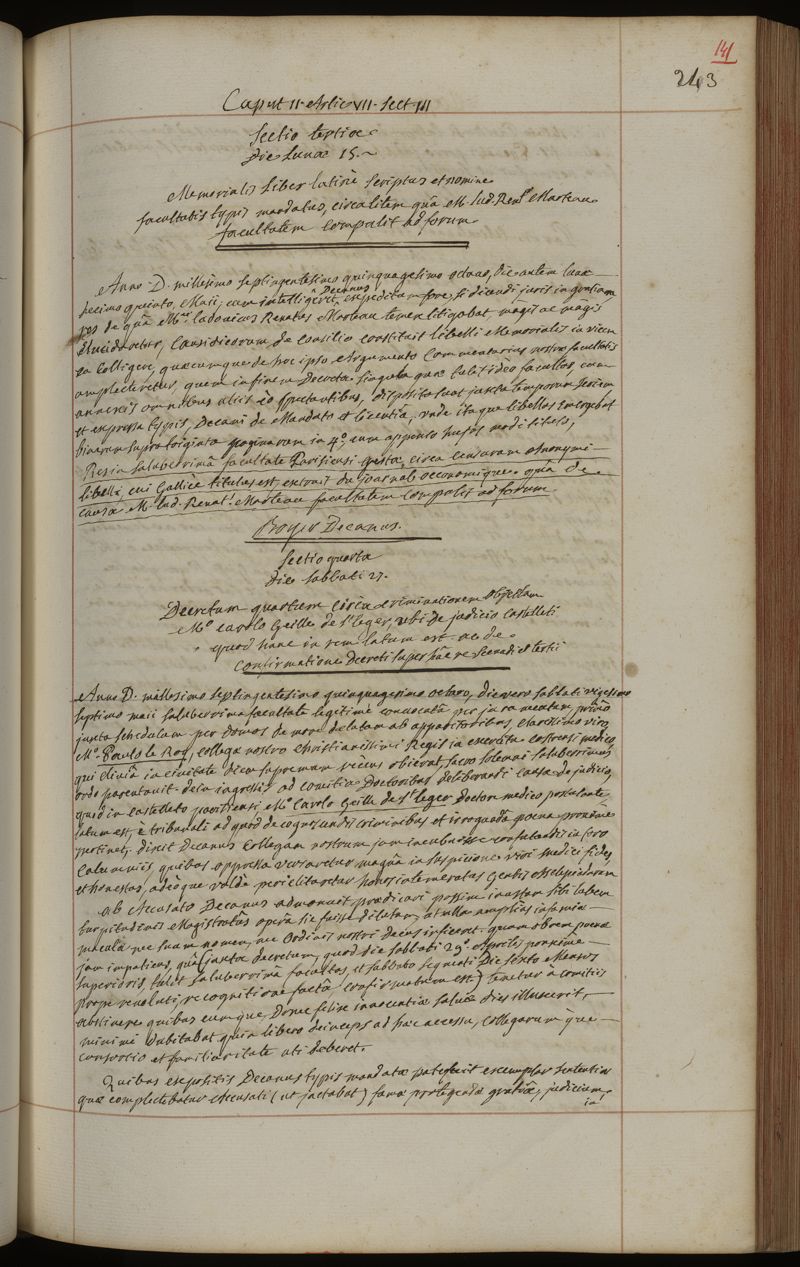 141
243
Caput II. Artic. VII. Sect. III
Sectio tertia.
Die Lunæ 15.~
Memorialis Liber latinè scriptus et nomine
facultatis typis mandatus, circa litem quâ M. Lud. Ren.t Marteau
facultatem compulit ad forum.
Anno D. millesimo septingentesimo quinquagesimo octavo, die autem lunæ
decimo quinto, Maii, cum intelligeret Decanus expeditam fore, si dicendi juris in gratiam
res de quâ M.er Ludovicus Renatus Marteau temerè litigabat magis ac magis
elucidaretur, Causidicorum de Consilio constituit libelli Memorialis in vicem
ea colligere, quæcumque de hoc ipso argumento Commentarius noster facultatis
amplecteretur, quem in finem Decreta singula quæ tulit ideo facultas, cum
annexis omnibus aliis eò spectantibus, disposita sunt juxta temporum seriem
et expressa typis, Decani de Mandato et licentia, unde itaque libellus
binarum supra triginta paginarum in 4.o, cum appenso hujus modi titulo,
Res in saluberrimâ facultate Parisiensi gesta, circa censuram Anonymi
libelli, cui Gallicè titulus est, extrait du Journal oeconomique. quâ de
causâ M. Lud. Renat. Marteau facultatem compulit ad forum.
Boyer Decanus.
Sectio quarta
die sabbati 27.
Decretum quartum circa criminationem objectam
M.o Carolo Geille de St leger, ubi de judicio Castelleti
quod hanc in rem latum est ac de
Confirmatione Decreti super hâc re secundi et tertii
Anno D. millesimo septingentesimo quinquagesimo octavo, die vero sabbati vigesimo
septimo maii saluberrima facultate legitimè convocatâ per juramentum, primo
juxta schedulam per domos de more delatam ab apparitoribus clarissimo viro
M.o Paulo le Roy, collega nostro Christianissimi Regis in exercitu castrensi medico,
qui diviâ in civitate diem supremum recens obierat, sacro solemni saluberrimus
ordo parentavit. dein ingressis ad comitia Doctoribus deliberandi causâ de judicio,
quod in Castelleto parisiensi M.o Carolo Geille de St leger Doctore medico postulante
latum est, è tribunali ad quod de cognoscendis criminibus et irrogandâ poenâ pronè
pertinet. dixit Decanus Collegam nostrum jam incubuisse confutandis in foro
Calumniis quibus oppressa versaretur magnâ in suspicione viri medici fides
et honestas, adeòque valde periclitaretur honos intemeratus gentis asclepiadarum
ab Accusato Decanus admonuit, prædicari possim inustam sibi labem
turpitudinis Magistratûs operâ sic fuisse dilutam, ut nulla amplius infamiæ
macula nec suum nomen, nec Ordinis nostri decus inficeret. quam ob rem poenæ
jam impatiens, quâ (juxta decretum, quod die sabbati 29.o Aprilis proxime
superioris, tulit saluberrima facultas, et sabbato sequenti Die sexto Mensis
prope revoluti, recognitione factâ confirmatum est) tenetur à comitiis
abstinere quibuscumque, Donec felix innocentiæ salvæ dies illuxerit,
minimè dubitabat quin libero deinceps ad hæc accessu, Collegarum que
consortio et familiaritate uti deberet.
Quibus expositis Decanus typis mandatæ patefecit exemplar sententiæ
quæ complectebatur Accusati (ut jactabat) famæ protegendæ gratiâ, judicium
in